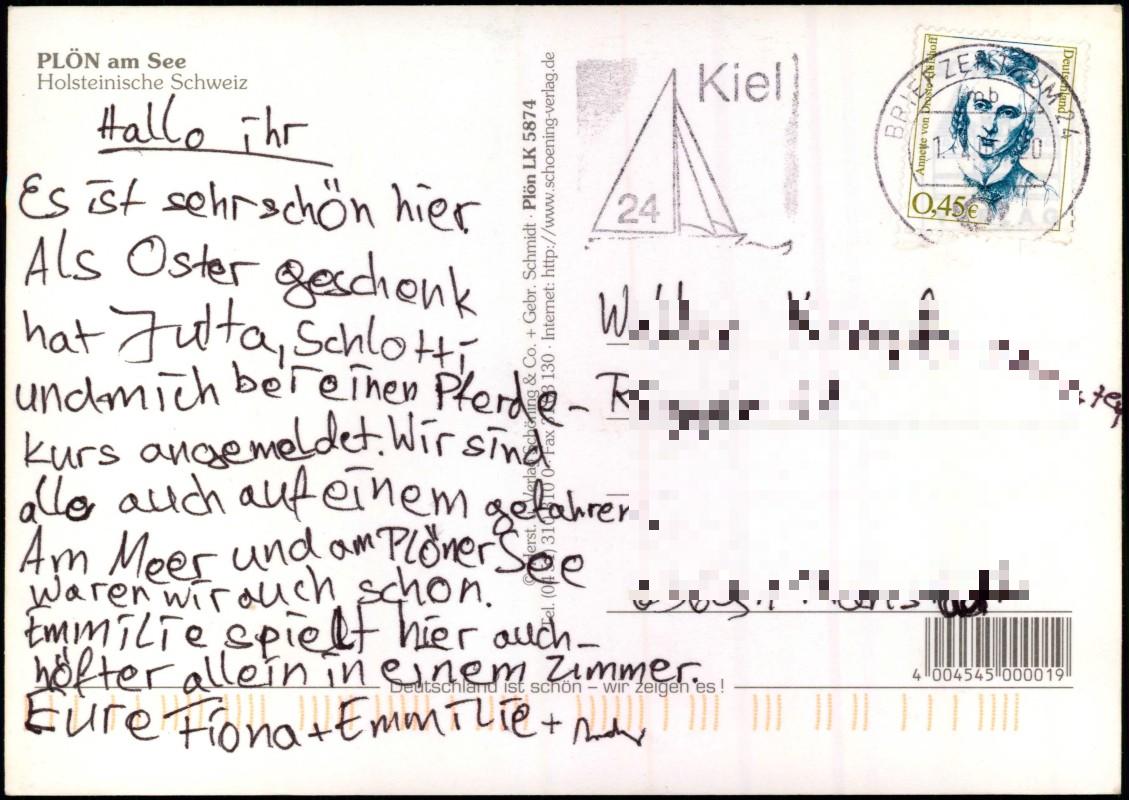 PLÖN am See
Holsteinische Schweiz
Hallo ihr
Es ist sehr schön hier.
Als Oster geschenk
hat Jutta, Schlotti
und mich bei einen Pferde-
kurs angemeldet. Wir sind
alle auch auf einem gefahren
Am Meer und am Plöner See
waren wir auch schon.
Emmilie spielt hier auch-
höfter allein in einem Zimmer.
Eure Fiona + Emmilie +
Schöning & Co. + Gebr. Schmidt · Plön LK 5874
Internet: http://www.schoening-verlag.de
Deutschland ist schön – wir zeigen es!
Kiel
24
BRIEFZENTRUM 24
mb
Deutschland
Annette von Droste-Hülshoff
0,45€
4 004545 000019